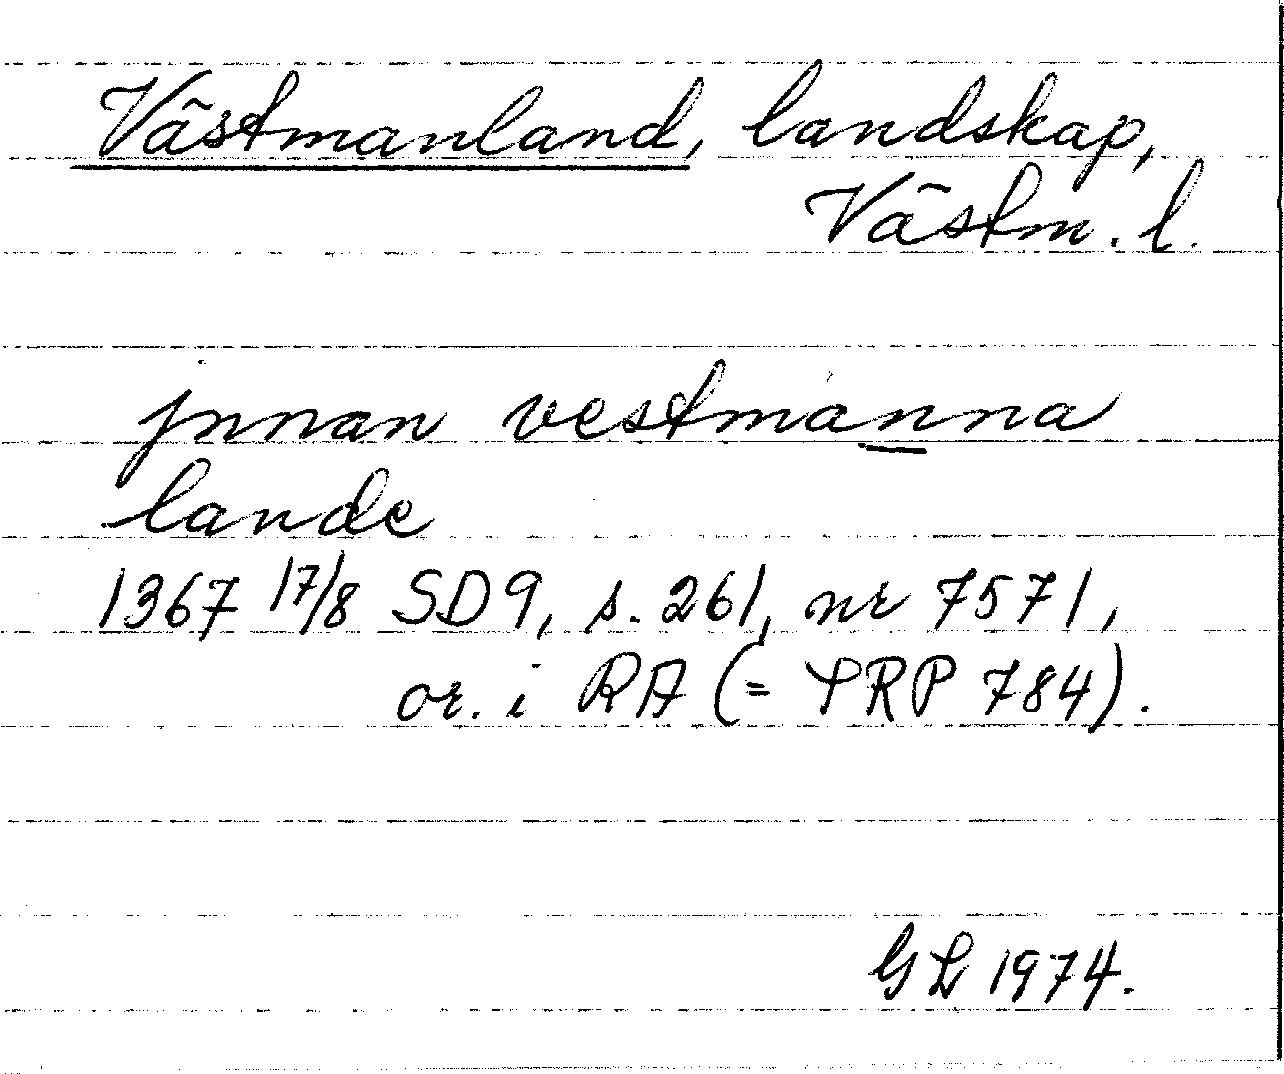 Västmanland, landskap,
Västm. l.
jnnan vestmanna
lande
1367 17/8 SD9, s. 261, nr 7571,
or. i RA (= PRP 784).
GL 1974.